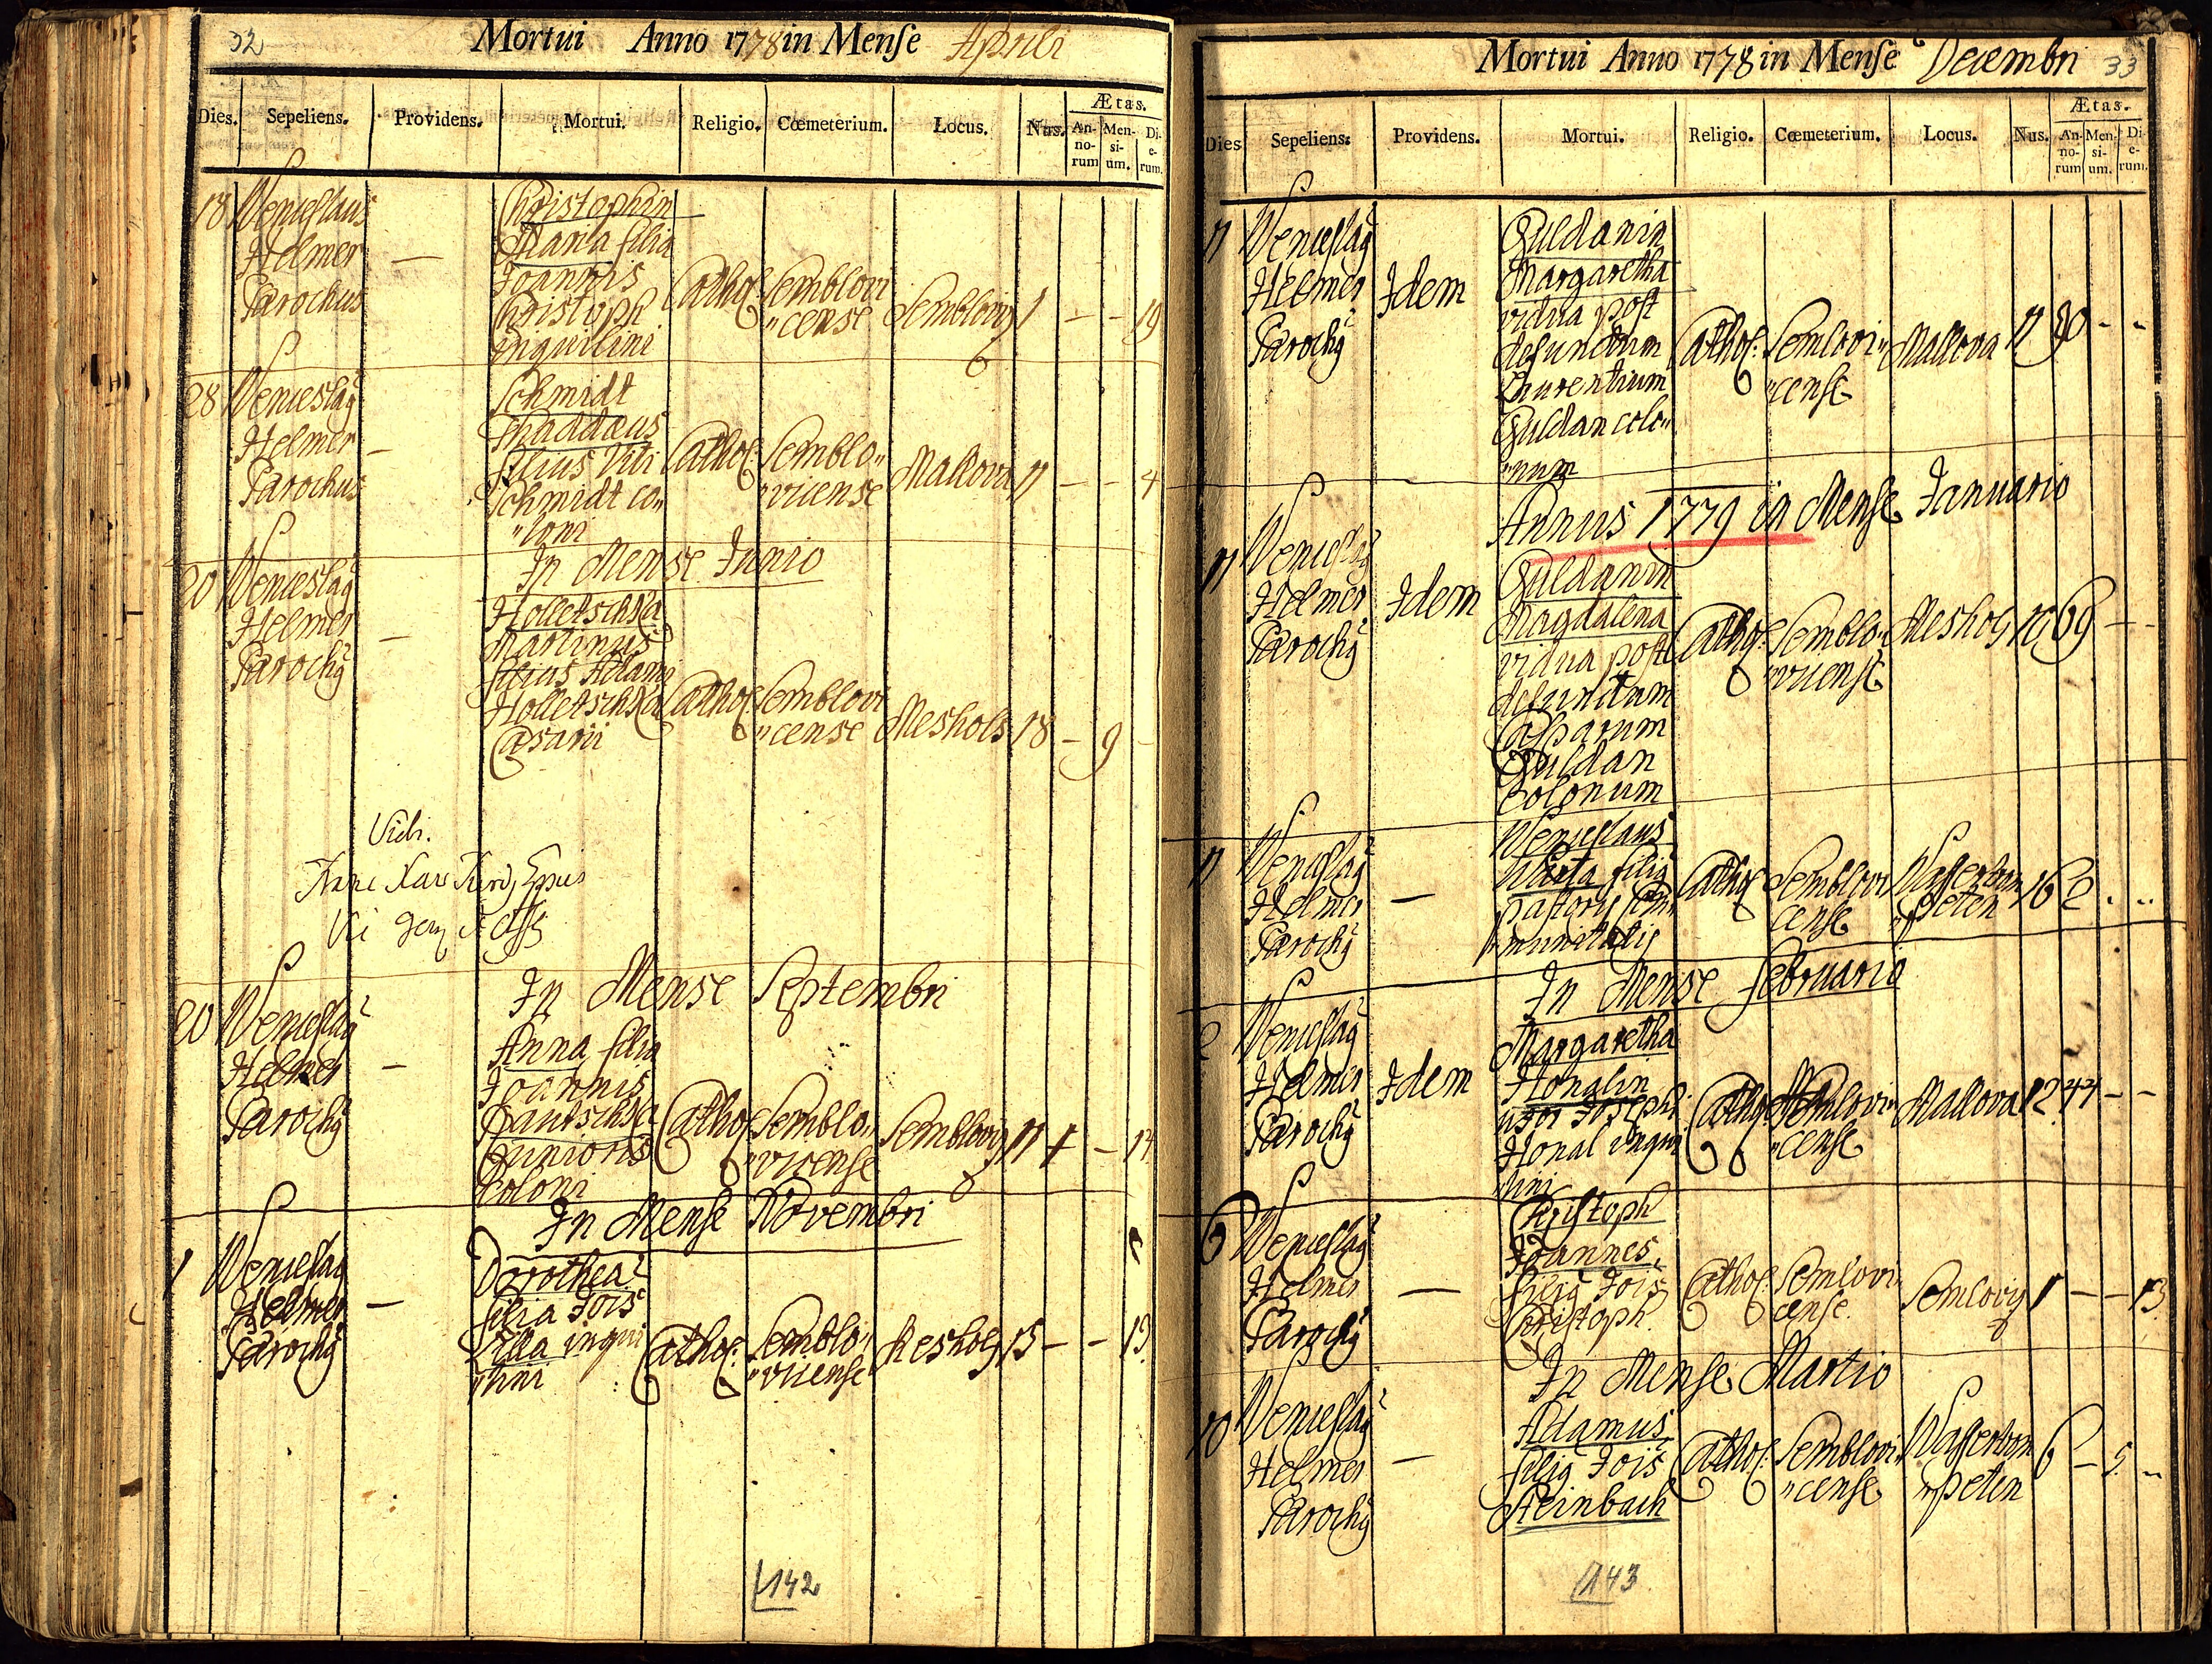 32
Mortui Anno 1778 in Mense Aprili
Dies. Sepeliens. Providens. Mortui. Religio. Cœmeterium. Locus. Nus. Ætas.
An-no-rum Men-si-um. Di-e-rum.
18 Wenceslaus
Helmer
Parochus
—
Christophin
Maria filia
Joannis
Christoph
inquilini
Cathol: Semblovi
"cense
Semblovi 1 — — 19
28 Wenceslaq
Helmer
Parochus
—
Schmidt
Thaddæus
filius Viti
Schmidt co"
"loni
Cathol: Semblo"
"vicense
Mallova 11 — — 4
In Mense Junio
20 Wenceslaq
Helmer
Parochq
—
Holletschka
Martinus
filius Adami
Holletschka
Casarii
Cathol: Semblovi
"cense
Meshols 18 — 9 —
Vidi.
In Mense Septembri
20 Wenceslaq
Helmer
Parochq
—
Anna filia
Joannis
Pautschka
Junioris
Coloni
Cathol: Semblo"
"vicense
Semblovi 11 1 — 14
In Mense Novembri
1 Wenceslaq
Helmer
Parochq
—
Dorothea
filia Jois
Lilla inqui
"lini
Cathol: Semblo"
"vicense
Meshols 15 — — 13
142
Mortui Anno 1778 in Mense Decembri 33
Dies Sepeliens. Providens. Mortui. Religio. Cœmeterium. Locus. Nus. Ætas.
An-no-rum Men-si-um. Di-e-rum.
11 Wenceslaq
Helmer
Parochq
Idem
Guldanin
Margaretha
vidua post
defunctum
Laurentium
Guldan colo"
"num
Cathol: Semlovi"
"cense
Mallova 11 90 - -
Annus 1779 in Mense Januario
11 Wenceslaq
Helmer
Parochq
Idem
Guldanin
Magdalena
vidua post
defunctum
Casparum
Guldan
Colonum
Cathol: Semblo"
"vicense
Meshols 10 69 - -
11 Wenceslaq
Helmer
Parochq
—
Wenceslaus
filiq
pastoris Com"
"munitatis
Cathol: Semblovi
cense
Wasserdom
"peten
16 2 . ..
In Mense Februario
2 Wenceslaq
Helmer
Parochq
Idem
Margaretha
Honalin
uxor Josephi
Honal inqui
"lini
Cathol: Semlovi"
"cense
Mallova 12 44 - -
6 Wenceslaq
Helmer
Parochq
—
Christoph
Joannes
filiq Jois
Christoph
Cathol: Semlovi"
cense.
Semlovi 1 — — 13
In Mense Martio
10 Wenceslaq
Helmer
Parochq
—
Adamus
filiq Jois
Steinbach
Cathol: Semblovi"
"cense
Wasserdom
"peten
6 — 5 ..
143